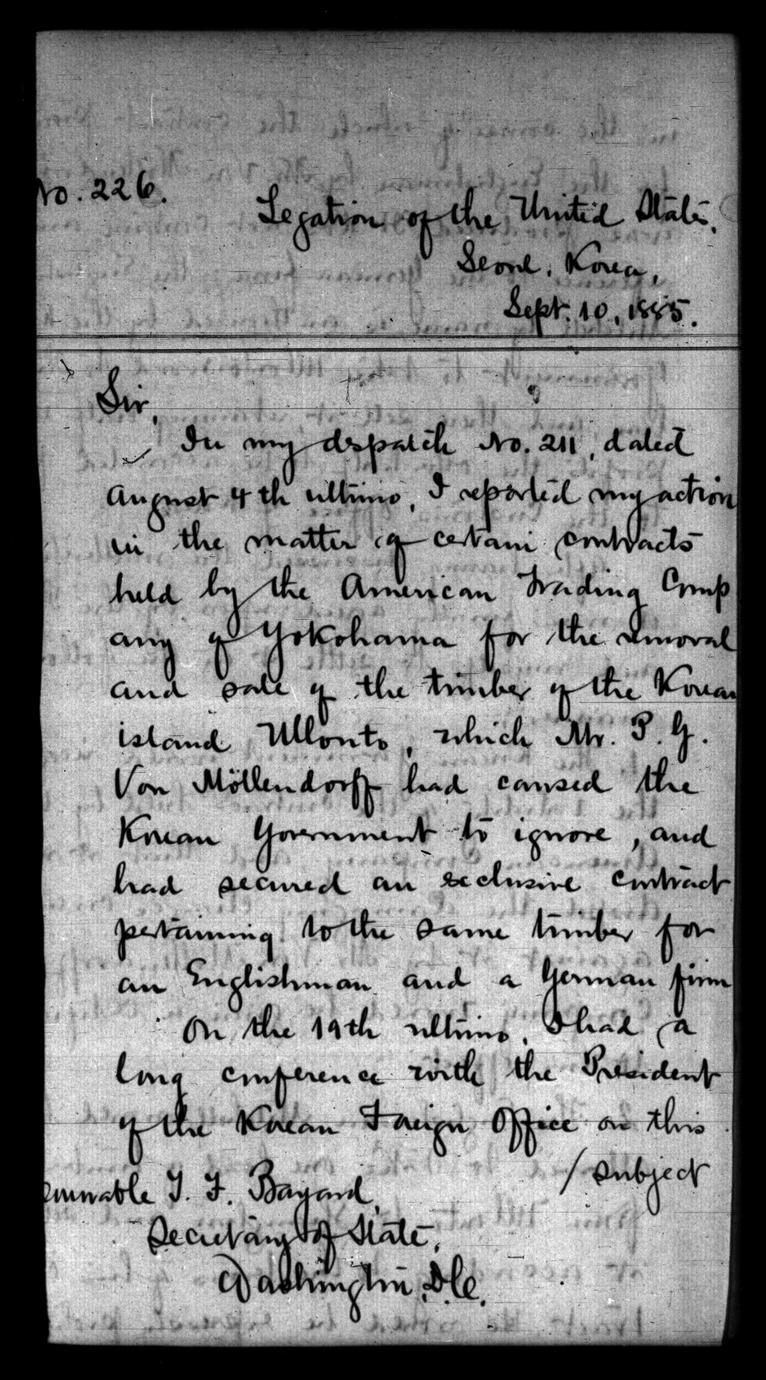 No. 226.
Legation of the United States,
Seoul, Korea,
Sept. 10, 1885.
Sir,
In my dspatch No. 211, dated
August 4th ultimo, I reported my action
in the matter of certain contracts
held by the American Trading Comp
any of Yokohama for the removal
and sale of the timber of the Korean
island Ullonto, which Mr. P. G.
Von Möllendorff had caused the
Korean Government to ignore, and
had secured an exclusive contract
pertaining to the same timber for
an Englishman and a German firm
On the 19th ultimo, I had a
long conference with the President
of the Korean Foreign Office on this
/ subject
onorable T. F. Bayard,
Secretary of State,
Washington, D.C.